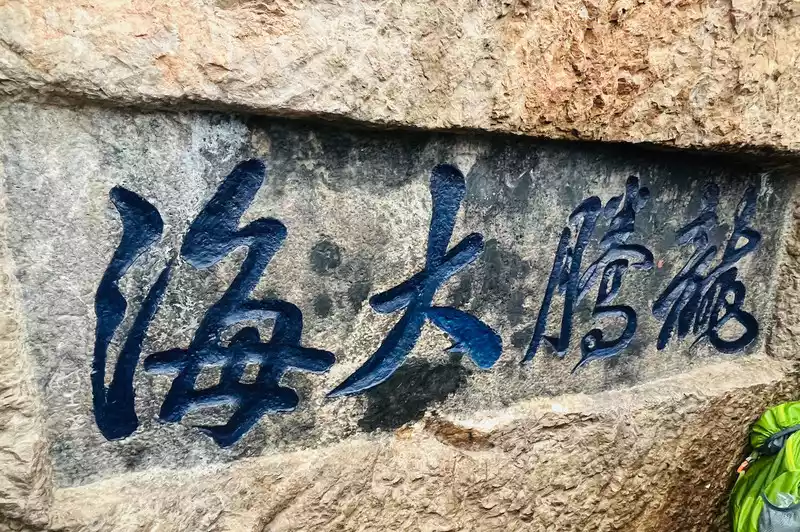 龍騰大海